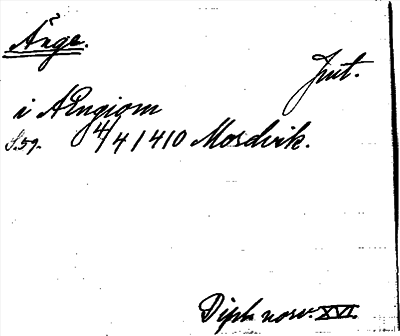 Ånge.
Jmt.
i Ængiom
S.59. 4/4 1410 Mosdvik.
Dipl. norv. XVI.